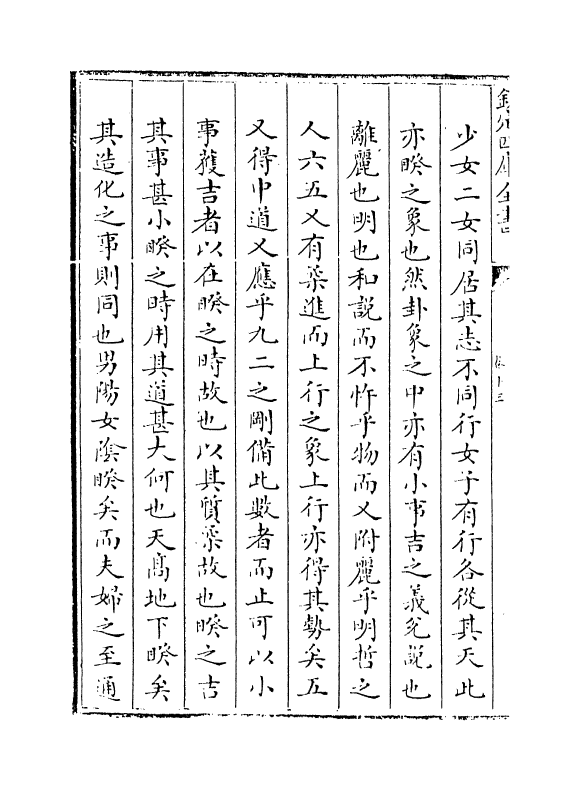 欽定四庫全書
卷十三
少女二女同居其志不同行女子有行各從其天此
亦暌之象也然卦象之中亦有小事吉之義兊說也
離麗也明也和說而不忤乎物而又附麗乎明哲之
人六五又有柔進而上行之象上行亦得其勢矣五
又得中道又應乎九二之剛備此數者而止可以小
事獲吉者以在暌之時故也以其質柔故也暌之吉
其事甚小暌之時用其道甚大何也天高地下暌矣
其造化之事則同也男陽女陰暌矣而夫婦之至通